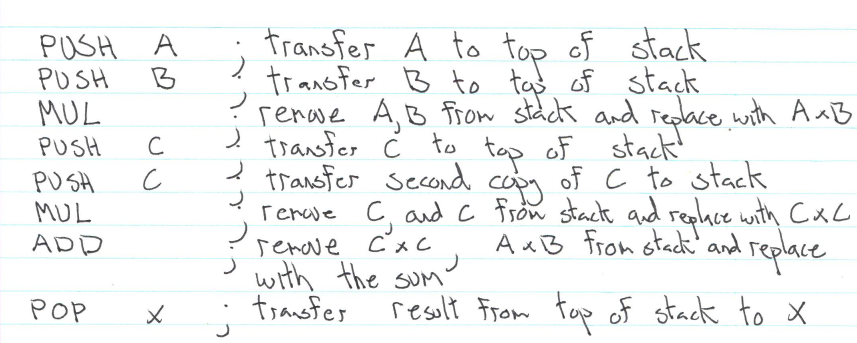 PUSH A ; transfer A to top of stack
PUSH B ; transfer B to top of stack
MUL ; remove A,B from stack and replace with A×B
PUSH C ; transfer C to top of stack
PUSH C ; transfer second copy of C to stack
MUL ; remove C, and C from stack and replace with C×C
ADD ; remove C×C, A×B from stack and replace
; with the sum
POP X ; transfer result from top of stack to X